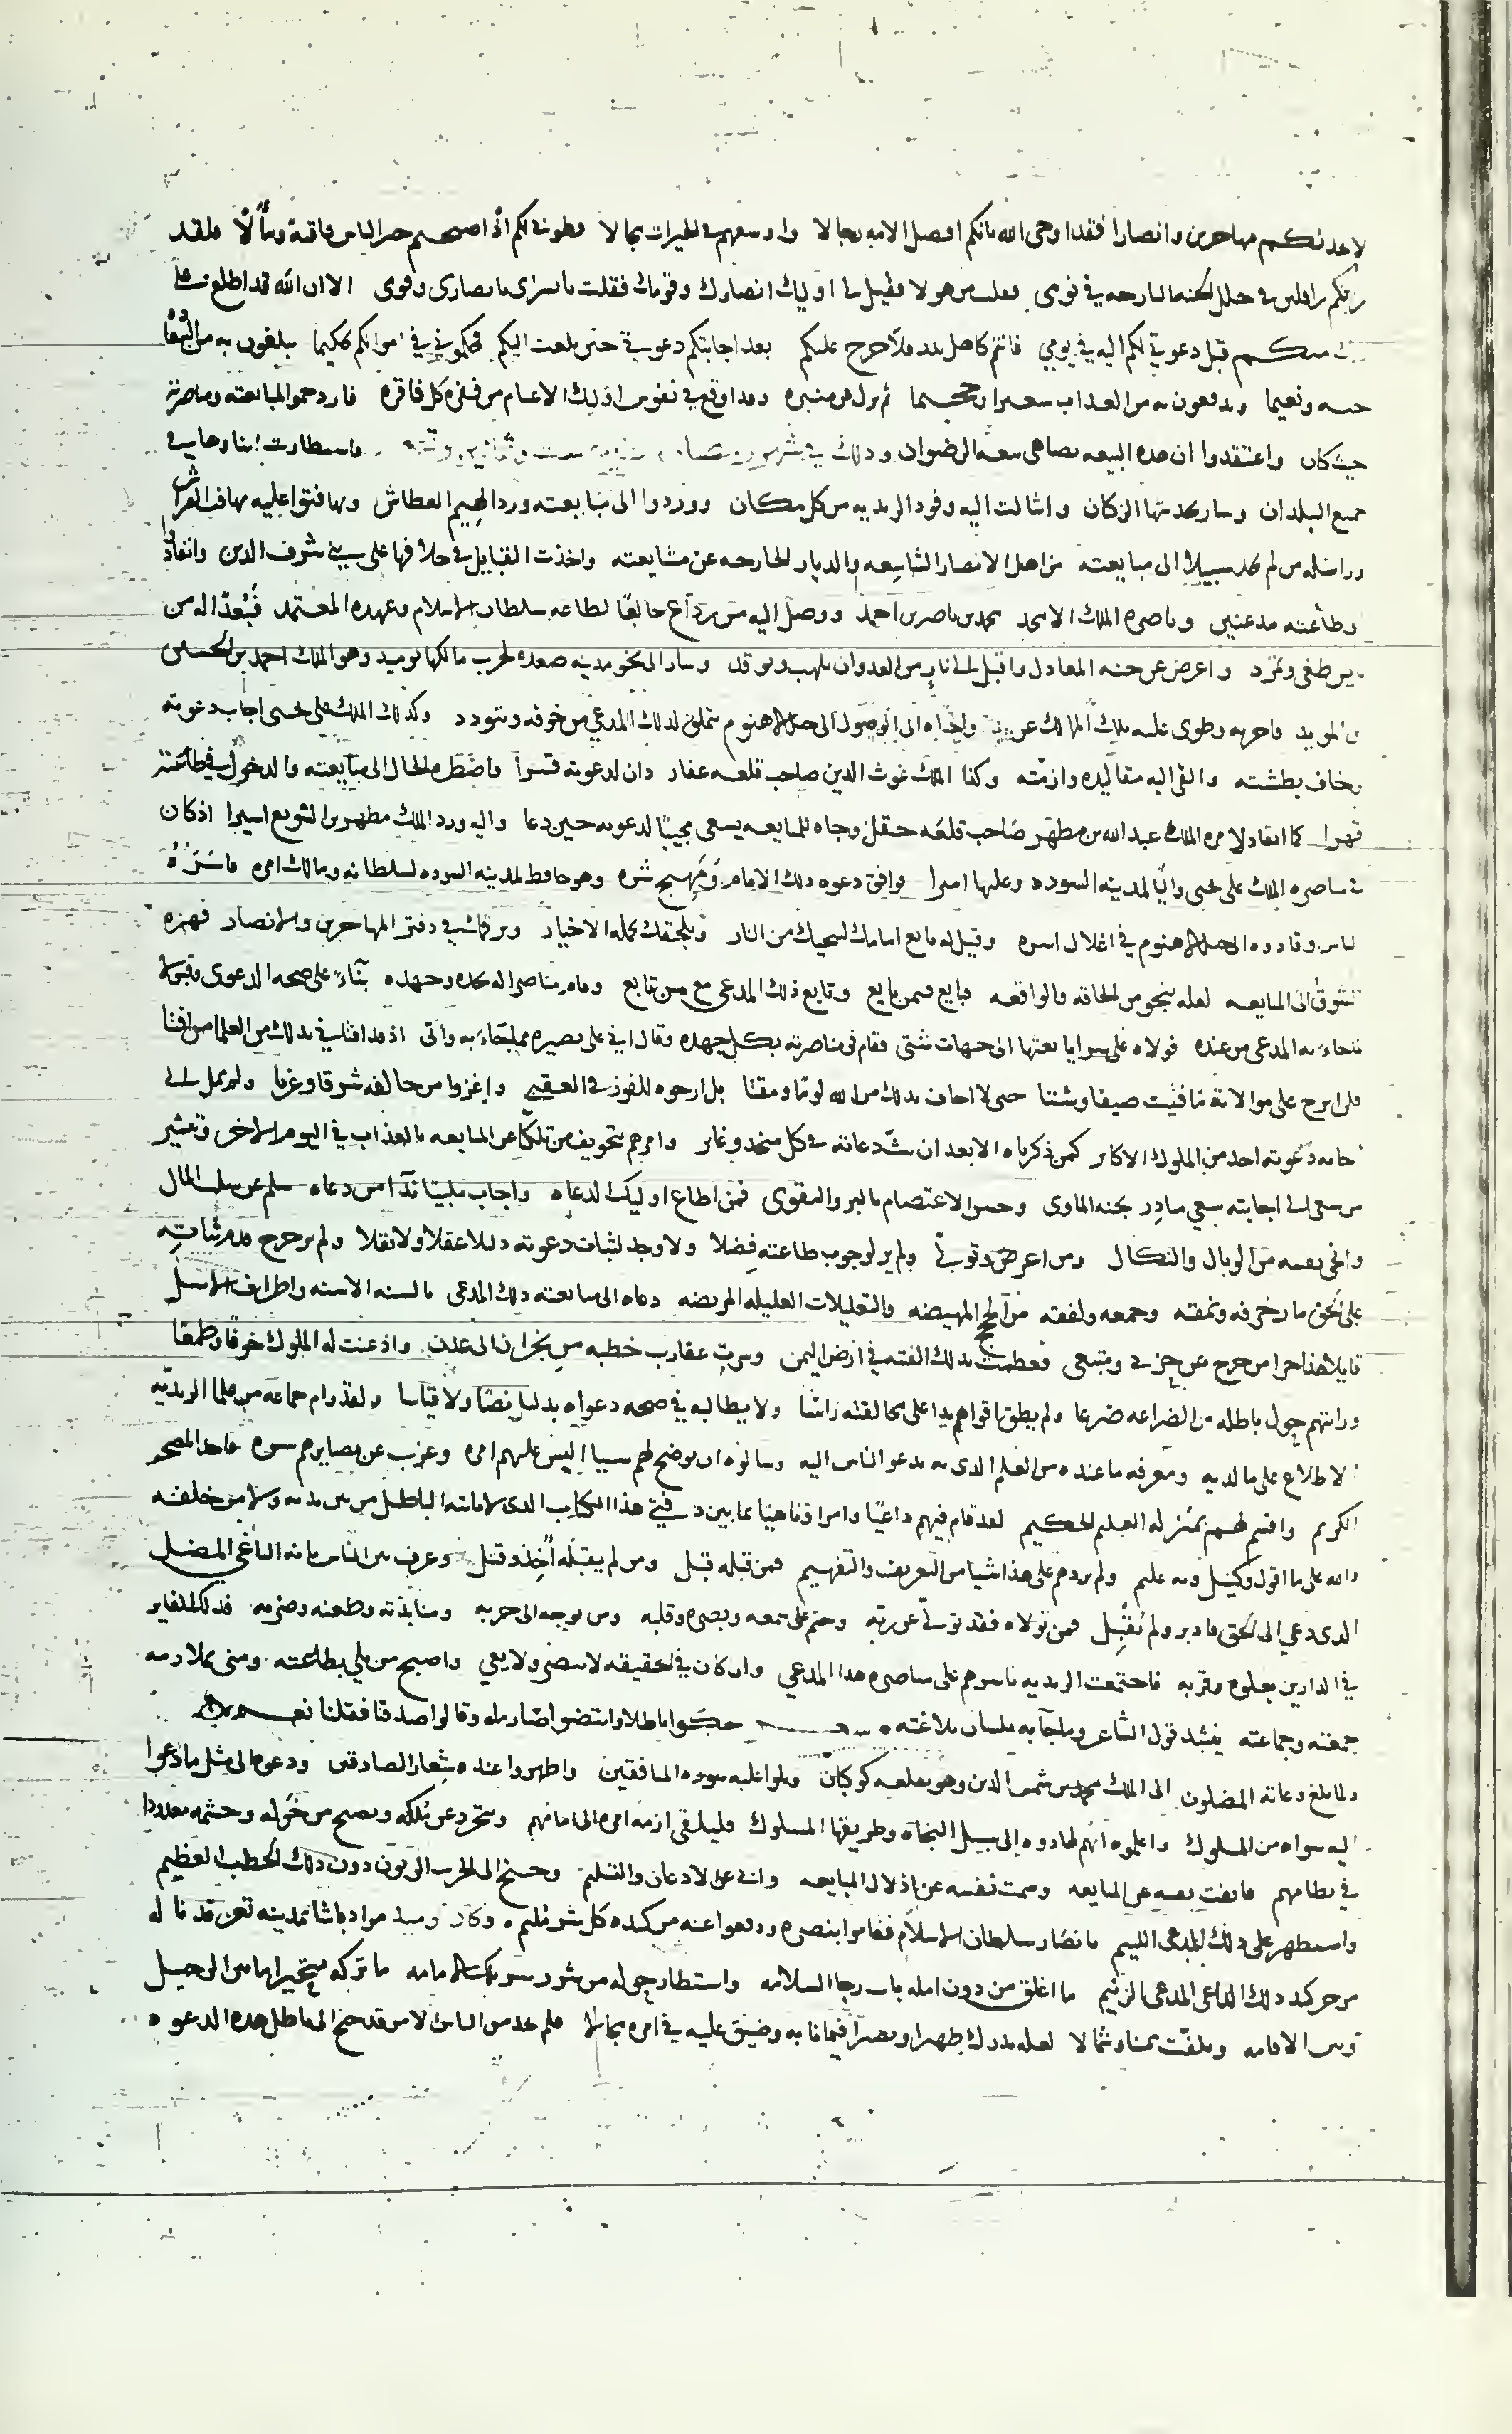 مهاجرين وانصارا فقد اوحى الله بانكم افضل الامه رجالا واوسعهم في الخيرات مجالا فطوبى لكم اذ اصبحتم خير الناس عاقبة ومآلا ولقد
رايتكم رافلين في حلل الجنه البارحه في نومي فقلت من هولا فقيل لي اوليك انصارك وقومك فقلت يا بشراى بانصارى وقومى الا ان الله قد اطلع
منكم قبل دعوتي لكم اليه في يومي فانتم كاهل بدر فلا حرج عليكم بعد اجابتكم دعوتي حتى بلغت اليكم فحكموني في اموالكم تحكيما تبلغون به من
ونعيما وتدفعون به من العذاب سعيرا وجحيما ثم نزل من منبره وقد اوقع في نفوس اوليك الاغنام من فقره كل فاقره فازدحموا لمبايعته ومناصرته
حيث كان واعتقدوا ان هذه البيعه تضاهى بيعة الرضوان وذلك في شهر فاستطارت ابناوها في
جميع البلدان وسار بحديثها الركان وانثالت اليه وفود الزيديه من كل مكان ووردوا الى مبايعته ورد الهيم العطاش وتهافتوا عليه تهافت الفراش
وراسله من لم يجد سبيلا الى مبايعته من اهل الامصار الشاسعه والديار الخارجه عن مشايعته واخذت القبايل في خلافها على بني شرف الدين وانقادوا
وطاعته مذعنين وناصره الملك الامجد محمد بن ناصر بن احمد ووصل اليه من رداع خالعًا لطاعه سلطان الاسلام وعهده المعتمد فبُعدًا له من
طغى وتمرد واعرض عن جنه المعادل واقبل الى نارٍ من العدوان تلهب وتوقد وسار الى نحو مدينه صعده لحرب مالكها لوميد وهو الملك احمد بن الحسين
المويد فاخرجه وطوى عليه تلك الممالك والجاه الى الوصول الى جبل الاهنوم يتملق لذلك المدعي من خوفه ويتودد وكذلك الملك على يحيى اجاب دعوته
وخاف بطشته والقى اليه مقاليده وازمته وكذا الملك غوث الدين صاحب قلعه عفار دان لدعوته قسرا واضطره الحال الى مبايعته والدخول في طاعته
قهرا كما انقاد لامره الملك عبد الله بن مطهر صاحب قلعه وجاه للمبايعه يسعى مجيبًا لدعوته حين دعا واليه ورد الملك مطهر بن الشويع اسيرا اذ كان
مناصره الملك على يحيى واليًا لمدينه السوده وعليها اميرا فوافق دعوه ذلك الامام وتهييج شره وهو حافظ لمدينه السوده لسلطانه ومالك امره فاسَرَهُ
الناس وقادوه الى جبل الاهنوم في اغلال اسره وقيل له بايع امامك لينجيك من النار ويلحقك بكمله الاخيار ويرقمك في دفتر المهاجرين والانصار فهزه
الشوق الى المبايعه لعله ينجو من الحاقه والواقعه فبايع فيمن بايع وتابع ذلك المدعى مع من تابع وقام مناصرا له بجده وجهده بنآء على صحه الدعوى وقبولا
لما جاء به المدعى من عنده فولاه على سرايا بعثها الى جهات شتى فقام في مناصرته بكل جهده وقال اني على بصيره مما جاء به واتى اذ قد افتاني بذلك من العلما من افتا
فلن ابرح على موالاته ما بقيت صيفا وشتا حتى لا اخاف بذلك من الله لوما ومقتا بل ارجوه للفوز في العقبى واغزوا من خالفه شرقا وغربا ولم يمل الى
دعوته احد من الملوك الاكابر كمن ذكرناه الا بعد ان بثّ دعاته في كل منجد وغاير وامرهم بتخويف من تلكّا عن المبايعه بالعذاب في اليوم الاخر وتبشير
من سعى الى اجابته سعي مبادر بجنه الماوى وحسن الاعتصام بالبر والتقوى فمن اطاع اوليك الدعاه واجاب ملبيًا ندآ من دعاه سلم عن سلب المال
وانجى نفسه من الوبال والنكال ومن اعرض وتولى ولم ير لوجوب طاعته فضلا ولا وجد لثبات دعوته دليلا عقلا ولا نقلا ولم يزحزح قدم ثباته
على الحق ما زخرفه ونمقه وجمعه ولفقه من الحجج المهيضه والتعليلات العليله المريضه دعاه الى مبايعته ذلك المدعى بالسنه الاسنه واطراف الاسل
قايلا هذا جزا من خرج عن حزبي ومتبعى فعظمت بذلك الفتنه في ارض اليمن وسرت عقارب خطبه من نجران الى عدن واذعنت له الملوك خوفا وطمعا
ورايتهم حول باطله من الضراعه ضرعا ولم يطق اقواهم يدا على مخالفته راسًا ولا يطالبه في صحه دعواه بدليل نصا ولا قياسا ولقد رام جماعه من علما الزيديه
الاطلاع على ما لديه ومعرفه ما عنده من العلم الذى به يدعو الناس اليه وسالوه ان يوضح لهم سبيا البس عليهم امره وعزب عن بصايرهم سره فاخذ المصحف
الكريم واقسم لهم بمنزله العليم الحكيم لقد قام فيهم داعيًا وامرا وناهيًا بما بين دفتي هذا الكتاب الذى لا ياتيه الباطل من بين يديه ولا من خلفه
والله على ما اقول وكيل وبه عليم ولم يزدهم على هذا شيا من التعريف والتفهيم فمن قبله قبل ومن لم يقبله أُخِذ وقتل وعرف بين الناس بانه الباغي المضل
الذى دعي الى الحق فادبر ولم يُقبِل فمن تولاه فقد تولى عن ربه وختم على سمعه وبصره وقلبه ومن توجه الى حربه ومنابذته وطعنه وضربه فذلك الفايز
في الدارين بعلوه وقربه فاجتمعت الزيديه باسرهم على مناصره هذا المدعي وان كان في الحقيقه لا يبصر ولا يعي واصبح من بلي بطاعته ومني بملازمه
جمعته وجماعته ينشد قول الشاعر وما جآ به بلسان بلاغته شعر حكوا باطلا وانتضوا صارما وقالوا صدقنا فقلنا نعم
ولما بلغ دعاته المضلون الى الملك محمد بن شمس الدين وهو بقلعه كوكبان وتلوا عليه سوره المنافقين واظهروا عنده شعار الصادقين ودعوه الى مثل ما دعوا
اليه سواه من الملوك واعلموه انهم لهادوه الى سبيل النجاه وطريقها المسلوك فليلقى ازمه امره الى امامهم ويتجرد عن ملكه ويصبح من خَوَله وحشمه معدودا
في نظامهم فانفت نفسه عن المبايعه وسمت نفسه عن اذلال المبايعه وانثنى عن الاذعان والتسليم وجنح الى الحرب الزبون دون ذلك الخطب العظيم
واستظهر على ذلك المدعى اللييم بانصار سلطان الاسلام فقاموا بنصره ودفعوا عنه من كيده كل شر مُليم وكان وميذ مراد باشا بمدينه تعز قد نا له
من حر كيد ذلك الداعى المدعى الزنيم ما اغلق من دون امله باب رجا السلامه واستطار جى له من شرر سو تلك الامامه ما تركه متحيرا ما بين الرحيل
وبين الاقامه وتلفّت يمنا وشمالا لعله يدرك ظهيرا ونصيرا فيما نابه وضيق عليه في امره مجالا فلم يجد من الناس الا من قد جنح الى باطل هذه الدعوه